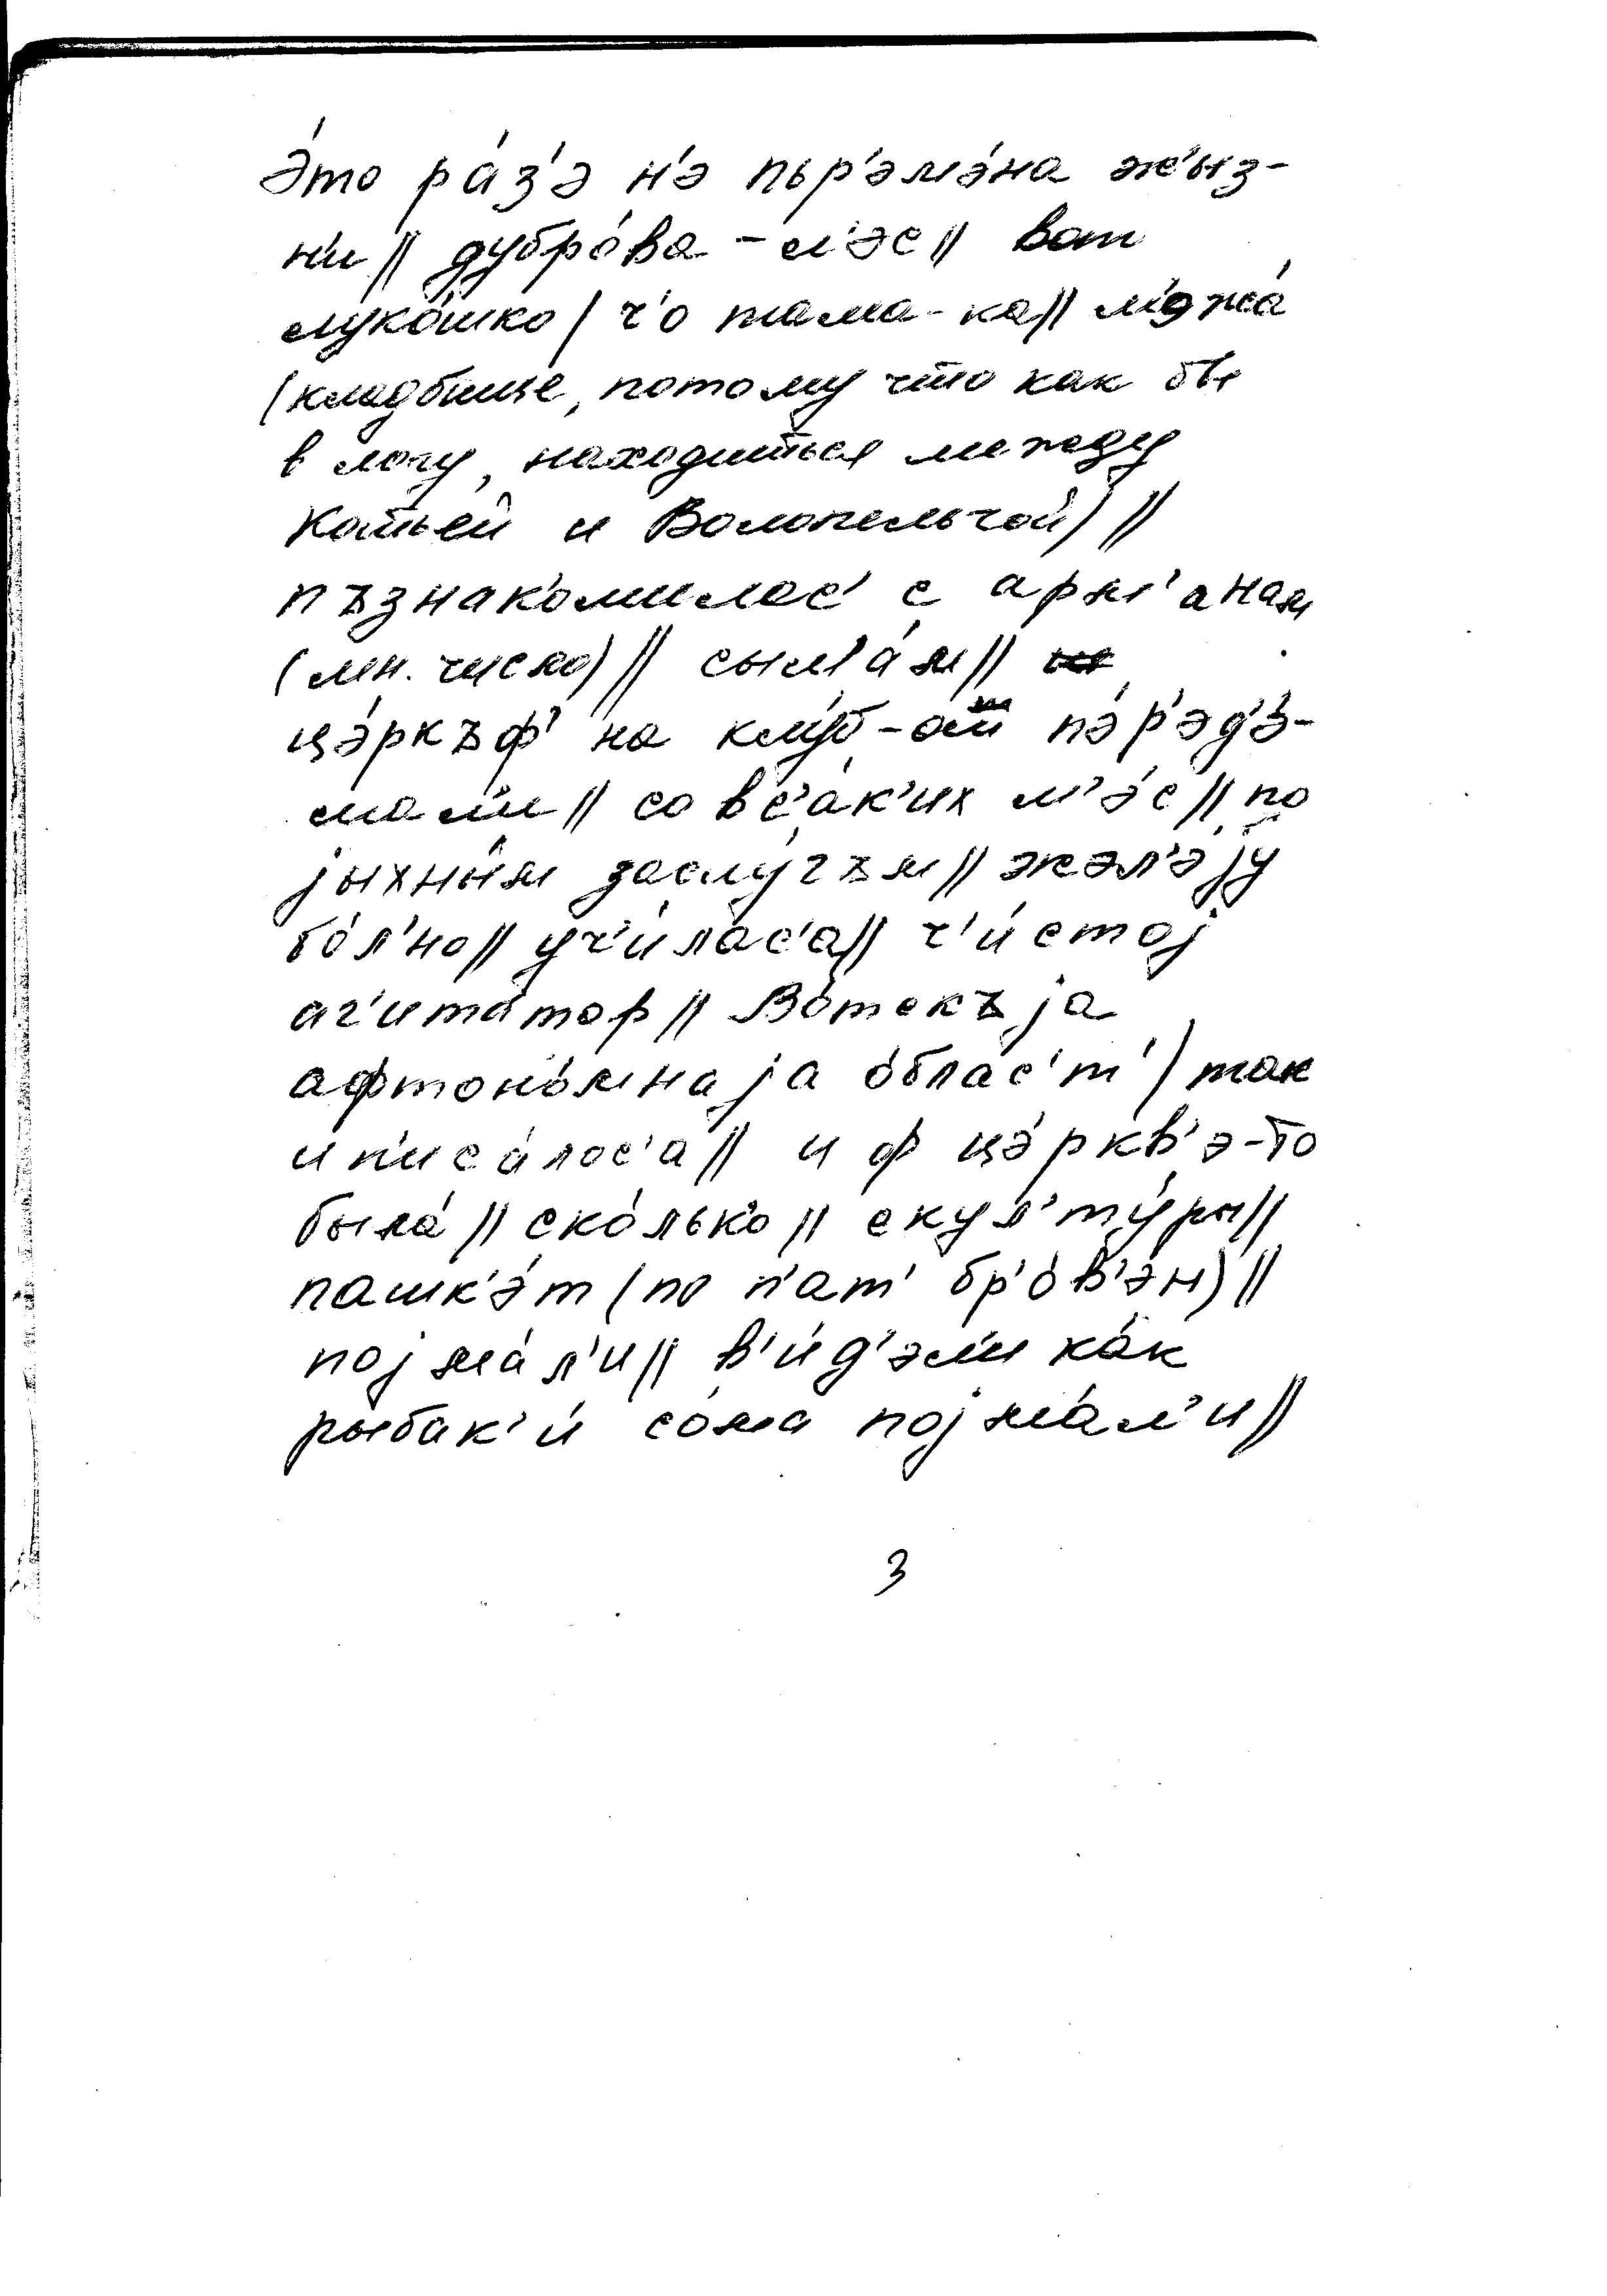 э́то ра́з'э н'э пьр'эмэ́на жы́з-
н'и || дубро́ва - л'эс || вот
луко́шко | ч'о тама-ка || м'э жа́
(кладбище, потому что как бы
в логу, находиться между
Катьей и Волопельгой) ||
пъзнако́милос' с арм'анам
(мн. число) || сыма́м ||
цэ́ркъф' на клуб-от п'э́р'эд'э́-
лали || со вс'а́к'их м'э́с || по
јыхны́м заслу́гъм || жэл'э́ју
бо́л'но || уч'и́лас'а || ч'и́стој
аг'ита́тор || Во́тскъја
афтоно́мнаја о́блас'т' | так
и п'иса́лос'а || и ф цэ́ркв'э-то
была́ || ско́лько || скул'ту́ры ||
пашк'э́т (по п'ат' бр'о́в'эн) ||
појма́л'и || в'и́д'эли ка́к
рыбак'и́ со́ма појма́л'и ||
3